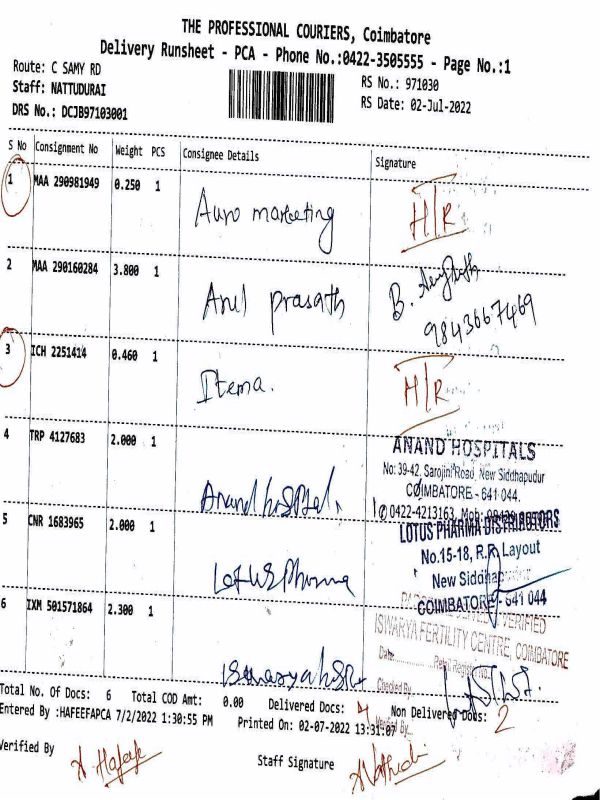 THE PROFESSIONAL COURIERS, Coimbatore
Delivery Runsheet - PCA - Phone No.:0422-3505555 - Page No.:1
Route: C SAMY RD
RS No.: 971030
Staff: NATTUDURAI
RS Date: 02-Jul-2022
DRS No.: DCJB97103001
S No Consignment No Weight PCS Consignee Details Signature
1 MAA 290981949 0.250 1 Auro marketing H/R
2 MAA 290160284 3.800 1 Arul prasath B.
9843667469
3 ICH 2251414 0.460 1 Itema. H/R
4 TRP 4127683 2.000 1 Anand hospital
ANAND HOSPITALS
No: 39-42, Sarojini Road, New Siddhapudur
COIMBATORE - 641 044.
0422-4213163, Mob:
5 CNR 1683965 2.000 1 Lotus pharma
LOTUS PHARMA DISTRIBUTORS
No.15-18, R.R. Layout
New Siddhapudur
COIMBATORE - 641 044
6 IXM 501571864 2.300 1
VERIFIED
ISWARYA FERTILITY CENTRE, COIMBATORE
Date
Checked By
Total No. Of Docs: 6 Total COD Amt: 0.00 Delivered Docs: 4 Non Delivered Docs: 2
Entered By :HAFEEFAPCA 7/2/2022 1:30:55 PM Printed On: 02-07-2022 13:31:07
Verified By
Staff Signature